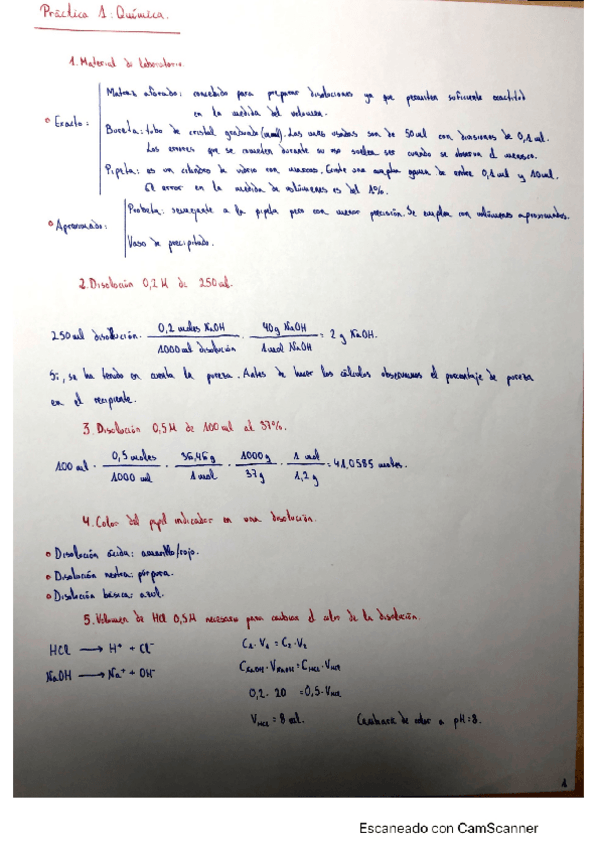 Práctica 1: Química.
1. Material de laboratorio.
Matraz aforado: concebido para preparar disoluciones ya que permiten suficiente exactitud
en la medida del volumen.
• Exacto:
Bureta: tubo de cristal graduado (ml). Las más usadas son de 50 ml con divisiones de 0,1 ml.
Los errores que se cometen durante su uso suelen ser cuando se observa el menisco.
Pipeta: es un cilindro de vidrio con marcas. Existe una amplia gama de entre 0,1 ml y 10 ml.
El error en la medida de volúmenes es del 1%.
• Aproximado:
Probeta: semejante a la pipeta pero con menor precisión. Se emplea con volúmenes aproximados.
Vaso de precipitado.
2. Disolución 0,2 M de 250 ml.
250 ml disolución · 0,2 moles NaOH / 1000 ml disolución · 40g NaOH / 1 mol NaOH = 2 g NaOH.
Sí, se ha tenido en cuenta la pureza. Antes de hacer los cálculos observamos el porcentaje de pureza
en el recipiente.
3. Disolución 0,5 M de 100 ml al 37%.
100 ml · 0,5 moles / 1000 ml · 36,46 g / 1 mol · 1000 g / 37 g · 1 ml / 1,2 g = 41,0585 moles.
4. Color del papel indicador en una disolución.
• Disolución ácida: amarillo/rojo.
• Disolución neutra: púrpura.
• Disolución básica: azul.
5. Volumen de HCl 0,5M necesario para cambiar el color de la disolución.
HCl → H⁺ + Cl⁻
NaOH → Na⁺ + OH⁻
C₁ · V₁ = C₂ · V₂
C NaOH · V NaOH = C HCl · V HCl
0,2 · 20 = 0,5 · V HCl
V HCl = 8 ml.
Cambiará de color a pH = 8.
1
Escaneado con CamScanner